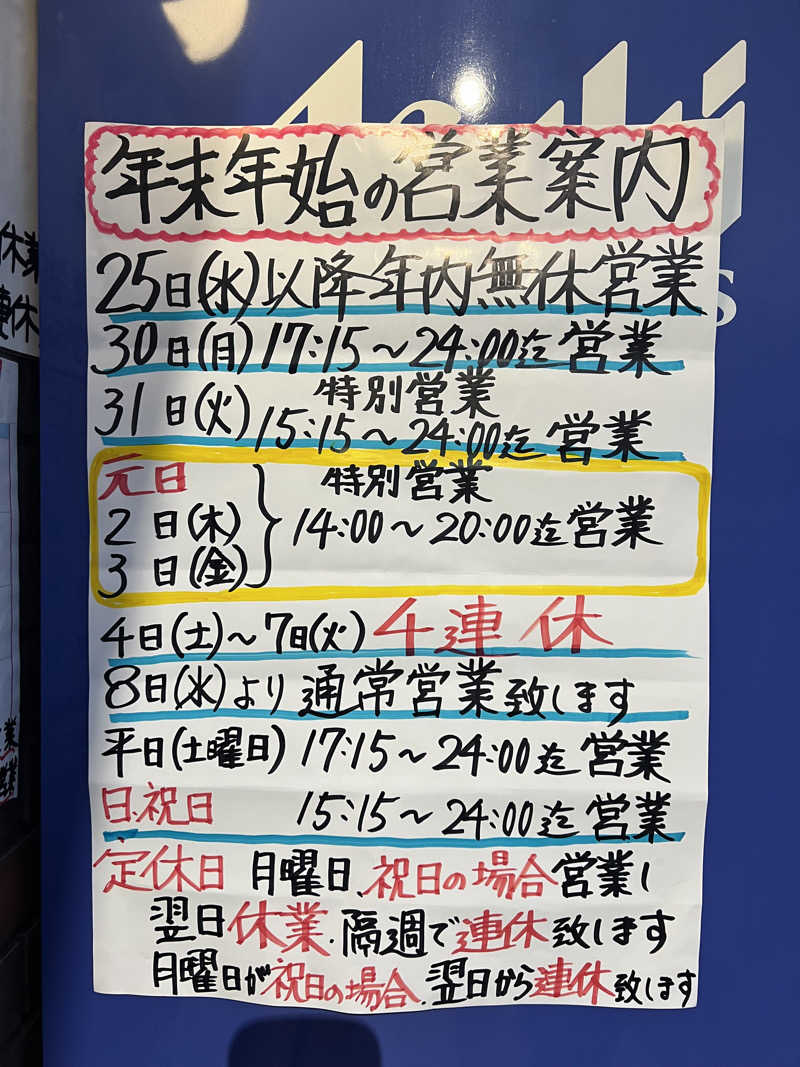 Asahi
年末年始の営業案内
25日(水)以降年内無休営業
30日(月)17:15～24:00迄営業
特別営業
31日(火)15:15～24:00迄営業
元日 特別営業
2日(木) 14:00～20:00迄営業
3日(金)
4日(土)～7日(火)4連休
8日(水)より通常営業致します
平日(土曜日)17:15～24:00迄営業
日.祝日 15:15～24:00迄営業
定休日 月曜日、祝日の場合営業し
翌日休業.隔週で連休致します
月曜日が祝日の場合.翌日から連休致します
休業
連休